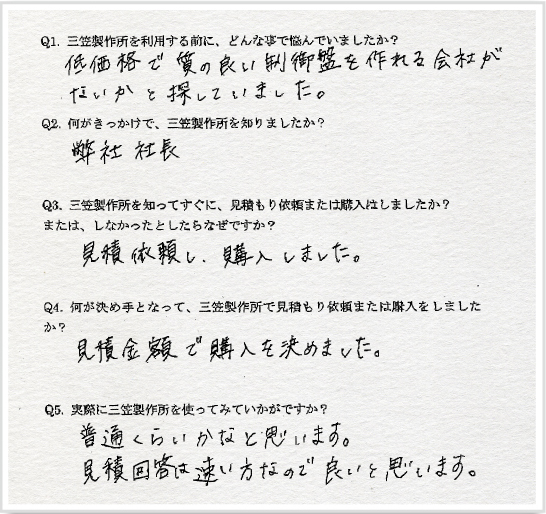 Q1. 三笠製作所を利用する前に、どんな事で悩んでいましたか?
低価格で質の良い制御盤を作れる会社が
ないかと探していました。
Q2. 何がきっかけで、三笠製作所を知りましたか?
弊社 社長
Q3. 三笠製作所を知ってすぐに、見積もり依頼または購入はしましたか?
または、しなかったとしたらなぜですか?
見積依頼し、購入しました。
Q4. 何が決め手となって、三笠製作所で見積もり依頼または購入をしました
か?
見積金額で購入を決めました。
Q5. 実際に三笠製作所を使ってみていかがですか?
普通くらいかなと思います。
見積回答は速い方なので良いと思います。